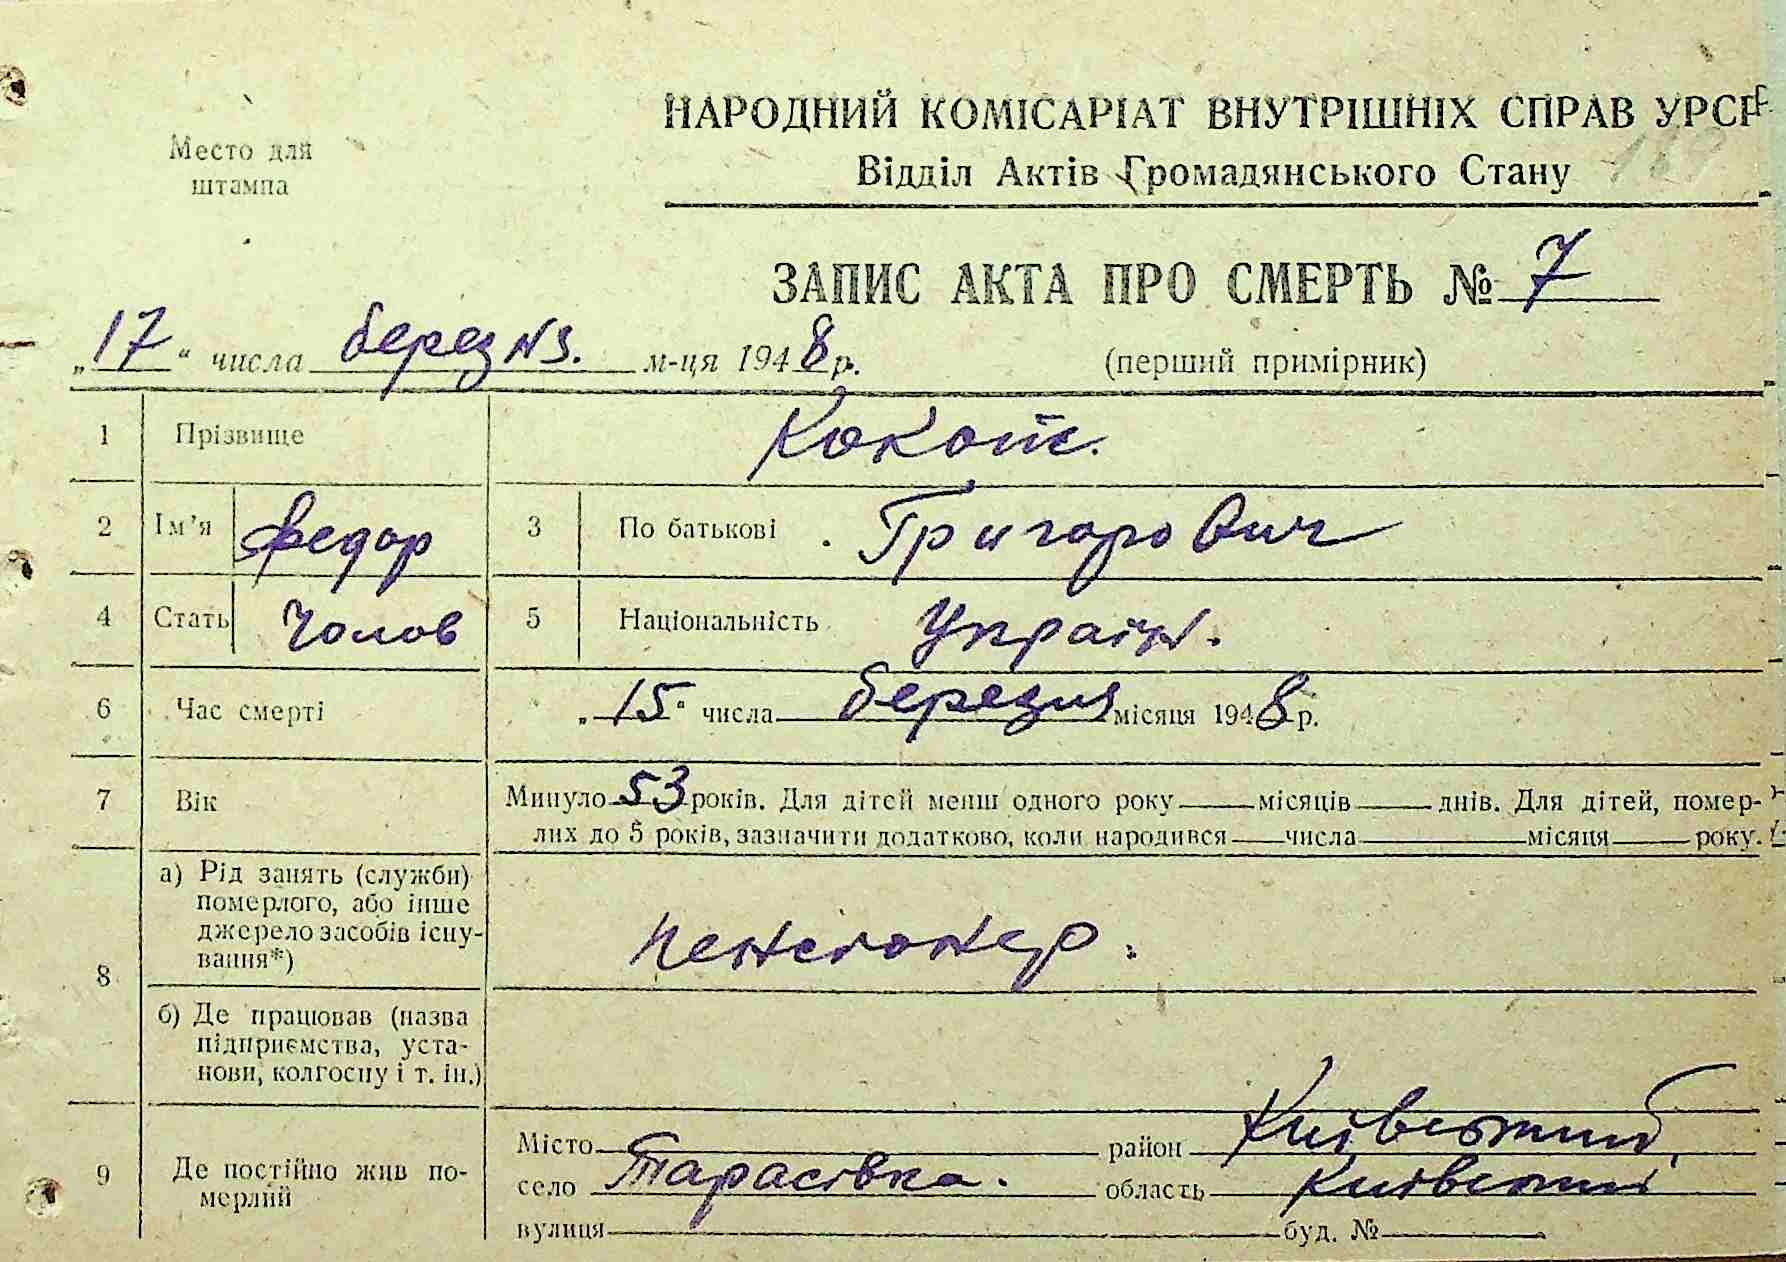 Место для
штампа
НАРОДНИЙ КОМІСАРІАТ ВНУТРІШНІХ СПРАВ УРСР
Відділ Актів Громадянського Стану
ЗАПИС АКТА ПРО СМЕРТЬ № 7
„17“ числа березня. м-ця 1948 р. (перший примірник)
1 Прізвище Кокот.
2 Ім'я Федор 3 По батькові Григорович
4 Стать Чолов 5 Національність Україн.
6 Час смерті „15“ числа березня місяця 1948 р.
7 Вік Минуло 53 років. Для дітей менш одного року місяців днів. Для дітей, помер-
лих до 5 років, зазначити додатково, коли народився числа місяця року.
8 а) Рід занять (служби)
померлого, або інше
джерело засобів існу-
вання*) пенсіонер.
б) Де працював (назва
підприємства, уста-
нови, колгоспу і т. ін.)
9 Де постійно жив по-
мерлий Місто район Київський
село Тарасівка. область Київський
вулиця буд. №